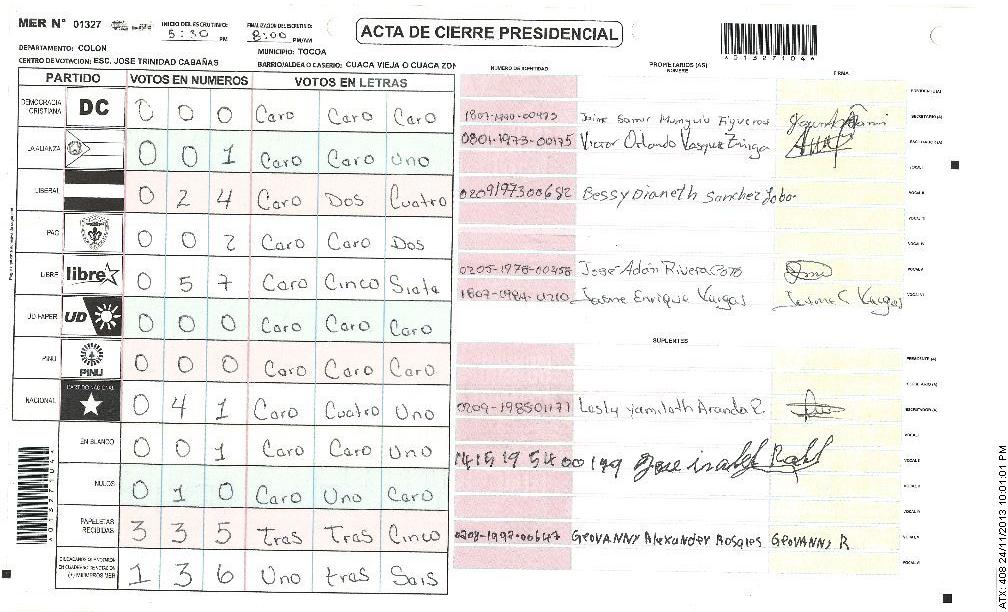 MER N° 01327
INICIO DEL ESCRUTINIO: 5:30 PM
FINALIZACION DEL ESCRUTINIO: 8:00 PM/AM
ACTA DE CIERRE PRESIDENCIAL
A013271044
DEPARTAMENTO: COLON
MUNICIPIO: TOCOA
CENTRO DE VOTACION: ESC. JOSE TRINIDAD CABAÑAS
BARRIO/ALDEA O CASERIO: CUACA VIEJA O CUACA ZON
PARTIDO VOTOS EN NUMEROS VOTOS EN LETRAS
DEMOCRACIA CRISTIANA DC 0 0 0 Caro Caro Caro
LA ALIANZA 0 0 1 Caro Caro Uno
LIBERAL 0 2 4 Caro Dos Cuatro
PAC 0 0 2 Caro Caro Dos
LIBRE libre 0 5 7 Caro Cinco Siata
UD-FAPER UD 0 0 0 Caro Caro Caro
PINU PINU 0 0 0 Caro Caro Caro
NACIONAL PARTIDO NACIONAL 0 4 1 Caro Cuatro Uno
EN BLANCO 0 0 1 Caro Caro Uno
NULOS 0 1 0 Caro Uno Caro
PAPELETAS RECIBIDAS 3 3 5 tras tras Cinco
(+) MIEMBROS MER 1 3 6 Uno tras Sais
NUMERO DE IDENTIDAD PROPIETARIOS (AS) NOMBRE FIRMA
PRESIDENTE(A)
SECRETARIO(A)
0801-1973-00175 Victor Orlando Vasquez ESCRUTADOR(A)
VOCAL I
0209197300682 Bessy Dianeth Sanchez Lobo VOCAL II
VOCAL III
VOCAL IV
0205-1978-00458 Jose Adan Rivera VOCAL V
Enrique Vargas Vargas VOCAL VI
SUPLENTES
PRESIDENTE (A)
SECRETARIO(A)
0209-198501171 Lesly Yamileth Aranda ESCRUTADOR(A)
VOCAL I
1415195400149 Jose isabel VOCAL II
VOCAL III
VOCAL IV
Geovanny Alexander Rosales Geovanny R VOCAL V
VOCAL VI
ATX: 408 24/11/2013 10:01:01 PM